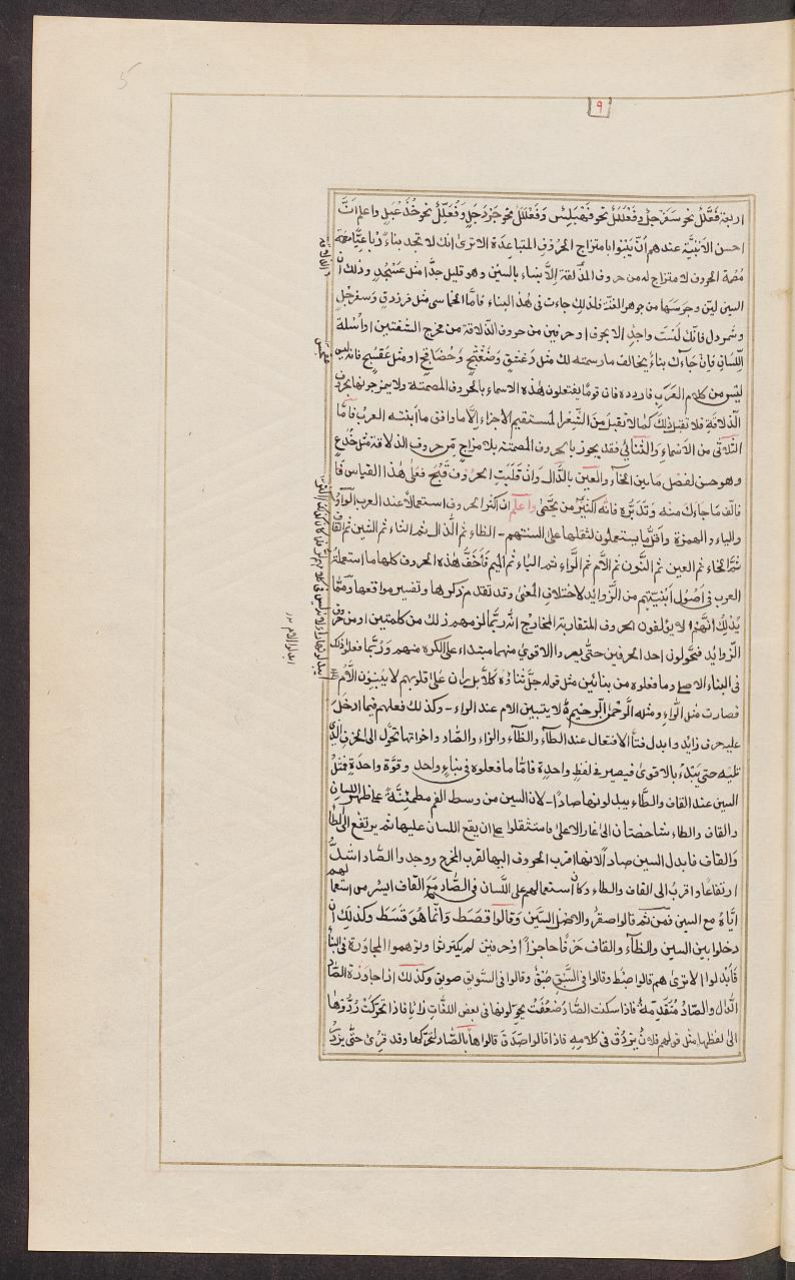 5
٩
اربعة فَعَلَّلٌ نحو سَفَرْجلٍ وفَعْلَلِلٌ نحو قَهْبَلِيس وَفِعْلَلٌّ نحو جِرْدَحْلٍ وَفُعَلِّلٌ نحو خُذَعْبِلٍ واعلم انَّ
احسن الابنيَّة عندهم اَنْ يَبْنوا بامتزاج الحُرُوفِ المتباعِدَة الا ترى انك لا تجد بناءً رُباعيًّا
مُصْمَتة الحروف لا مزاج له من حروف المذلقة اِلاَّ بناء بالسين وهو قليل جدًّا مثل عَسْجَدٍ وذلك انَّ
السين لين وجَرَسَهَا من جوهر الغنة فلذلك جاءت فى هٰذا البناء فامَّا الخماسى مثل فرزدق وَسفرجل
وشمردل فانَّك لَسْتَ واجدها الا بحرف او حرفين من حروف الذّلاقة من مخرج الشفتين او أسلة
اللّسان فاِنْ جَاءَك بناءٌ يخالف ما رسمته لك مثل
ليْس من كلام العَرَبِ فاردده فان قومًا يفتعلون هٰذه الاسماء بالحروف المصمتة ولا يمزجونها بحروف
الذلاقةِ فلا تقبل ذٰلك كما لا تقبل من الشّعر المستقيم الاجزاء الّا ما وافق ما ابنته العربُ فامّا
الثلاثى من الاسْماءِ والثنائىُّ فقد يجوز بالحروف المصمتة بلا مزاج من حروف الذلاقة مثل خُدَع
وهو حسن لفصل مَا بين الخآء والعين بالدَّال وَاِنْ قَلَبْتَ الحُرُوفَ قَبُحَ فعلى هٰذا القياس فَا
فالّف مَا جَاءَك منه وَتَدَبَّرَه فانّه اَكثرُ من يحصٰى واعلم ان اكثر الحروف استعمالاً عند العرب الواوُ
والياء والهمزة وَاَقلُّ ما يستعملون لثقلها على السنتهم - الظاء ثم الذّال ثم الثاء ثم الشين ثم القاف
ثمَّ الخاء ثم العين ثم النُّون ثم اللّام ثم الرَّاء ثم الباء ثم الميم فَاَخَفُّ هٰذه الحروف كلها ما استعملته
العرب فى اُصُول اَبنيتهم من الزَّوائِد لاختلاف المعنى وقد تقدم ذكرها وتفسير مواقعها وَممَّا
يَدُلك انهم لا يؤلفون الحروف المتقاربة المخارج انه ربّما لزمهم ذلك من كلمتين او من حروف
الزّوائد فيحولون احد الحرفين حتّٰى يصيروا الاقوى منهما مبتداء على الكره منهم وَرُبّما فعلوا ذٰلك
فى البناء الاصلى وما فعلوه من بنائين مثل قوله جلّ ثناؤه كَلَّا بل ران على قلوبهم لا يبيّنون اللَّام
فصارت مثل الراءِ ومثله الرَّحمٰن الرحيم لا يتبين الام عند الراء - وكذلك فعلهم فيما ادخل
عليه حرف زايد وابدل فتآ الافتعال عند الطآء والظآء والزاء والصّاد واخواتها تحوّل الى الحرف الذى
تليه حتى يبدء بالاقوى فيصير فى لفظ واحدة فامّا ما فعلوه فى بناء واحد وقوّة واحدة فمثل
السين عند القاف والطاء يبدلونها صادًا - لان السين من وسط الفم مطمئنة على ظهر اللسان
والقاف والطاء شاخصتان الى الغار الاعلى فاستثقلوا ان يقع اللسان عليها ثم يرتفع الى الطاء
وَالقاف فابدل السين صادًا لانها اقرب الحروف اليها لقرب المخرج ووجدوا الصّاد اشدَّ
ارتفاعًا واقربَ الى القاف والطاء وكان استعمالهم على اللّسان فى الصّاد مع القاف ايسر من استعمالهم
ايّاهُ مع السين فمن ثم قالوا صقر والافضل السِّين وقالوا قصَط وانّما هو قَسَط وكذلك ان
دخلوا بين السين والطاء والقاف حَرفًا حاجزًا او حرفين لم يكترثوا وتوهموا المجاورة فى البناء
فَابدلوا الا ترى هم قالوا صَبْط وقالوا فى السَّبْقِ صَبْق وقالوا فى السَّويق صويق وكذلك اذا جاورة الصّاد
الدّال والصّادُ مُتَقَدِّمة فاذا سكنت الصّاد ضعُفَتْ يحوّلونها فى بعض اللغات زايًا فاذا تحرّكَتْ رُدُّوها
الى لفظها مثل قولهم فلانٌ يَزدُق فى كلامه فاذا قالوا صَدَقَ قالوها بالصّاد لتحرّكها وقد قُرِئ حتّٰى يزدُ
ابدلوا اللام